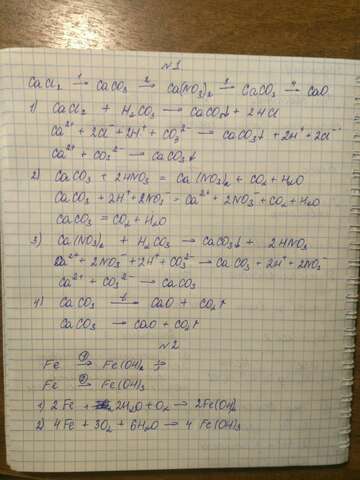 №1
CaCl₂ →¹ CaCO₃ →² Ca(NO₃)₂ →³ CaCO₃ →⁴ CaO
1) CaCl₂ + H₂CO₃ → CaCO₃↓ + 2HCl
Ca²⁺ + 2Cl⁻ + 2H⁺ + CO₃²⁻ → CaCO₃↓ + 2H⁺ + 2Cl⁻
Ca²⁺ + CO₃²⁻ → CaCO₃↓
2) CaCO₃ + 2HNO₃ = Ca(NO₃)₂ + CO₂ + H₂O
CaCO₃ + 2H⁺ + 2NO₃⁻ = Ca²⁺ + 2NO₃⁻ + CO₂ + H₂O
CaCO₃ = CO₂ + H₂O
3) Ca(NO₃)₂ + H₂CO₃ → CaCO₃↓ + 2HNO₃
Ca²⁺ + 2NO₃⁻ + 2H⁺ + CO₃²⁻ → CaCO₃ + 2H⁺ + 2NO₃⁻
Ca²⁺ + CO₃²⁻ → CaCO₃
4) CaCO₃ →ᵗ CaO + CO₂↑
CaCO₃ → CaO + CO₂↑
№2
Fe →① Fe(OH)₂
Fe →② Fe(OH)₃
1) 2Fe + 2H₂O + O₂ → 2Fe(OH)₂
2) 4Fe + 3O₂ + 6H₂O → 4Fe(OH)₃